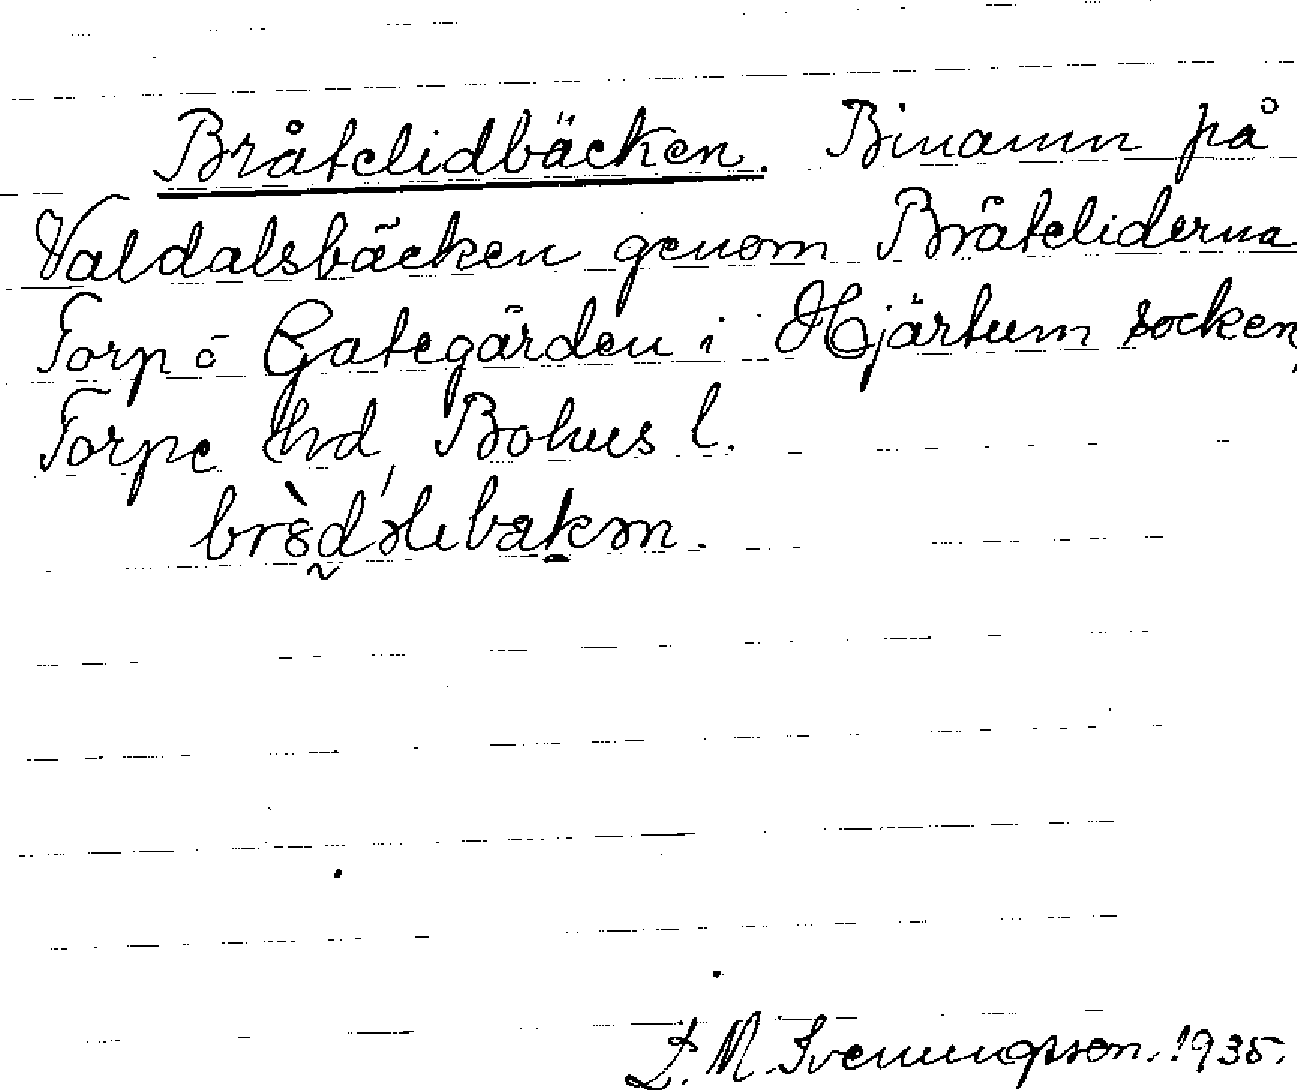 Bråtelidbäcken. Binamn på
Valdalsbäcken genom Bråteliderna
Torp o Gategården i Hjärtum socken,
Torpe hd, Bohus l.
M. Svenungsson. 1935.